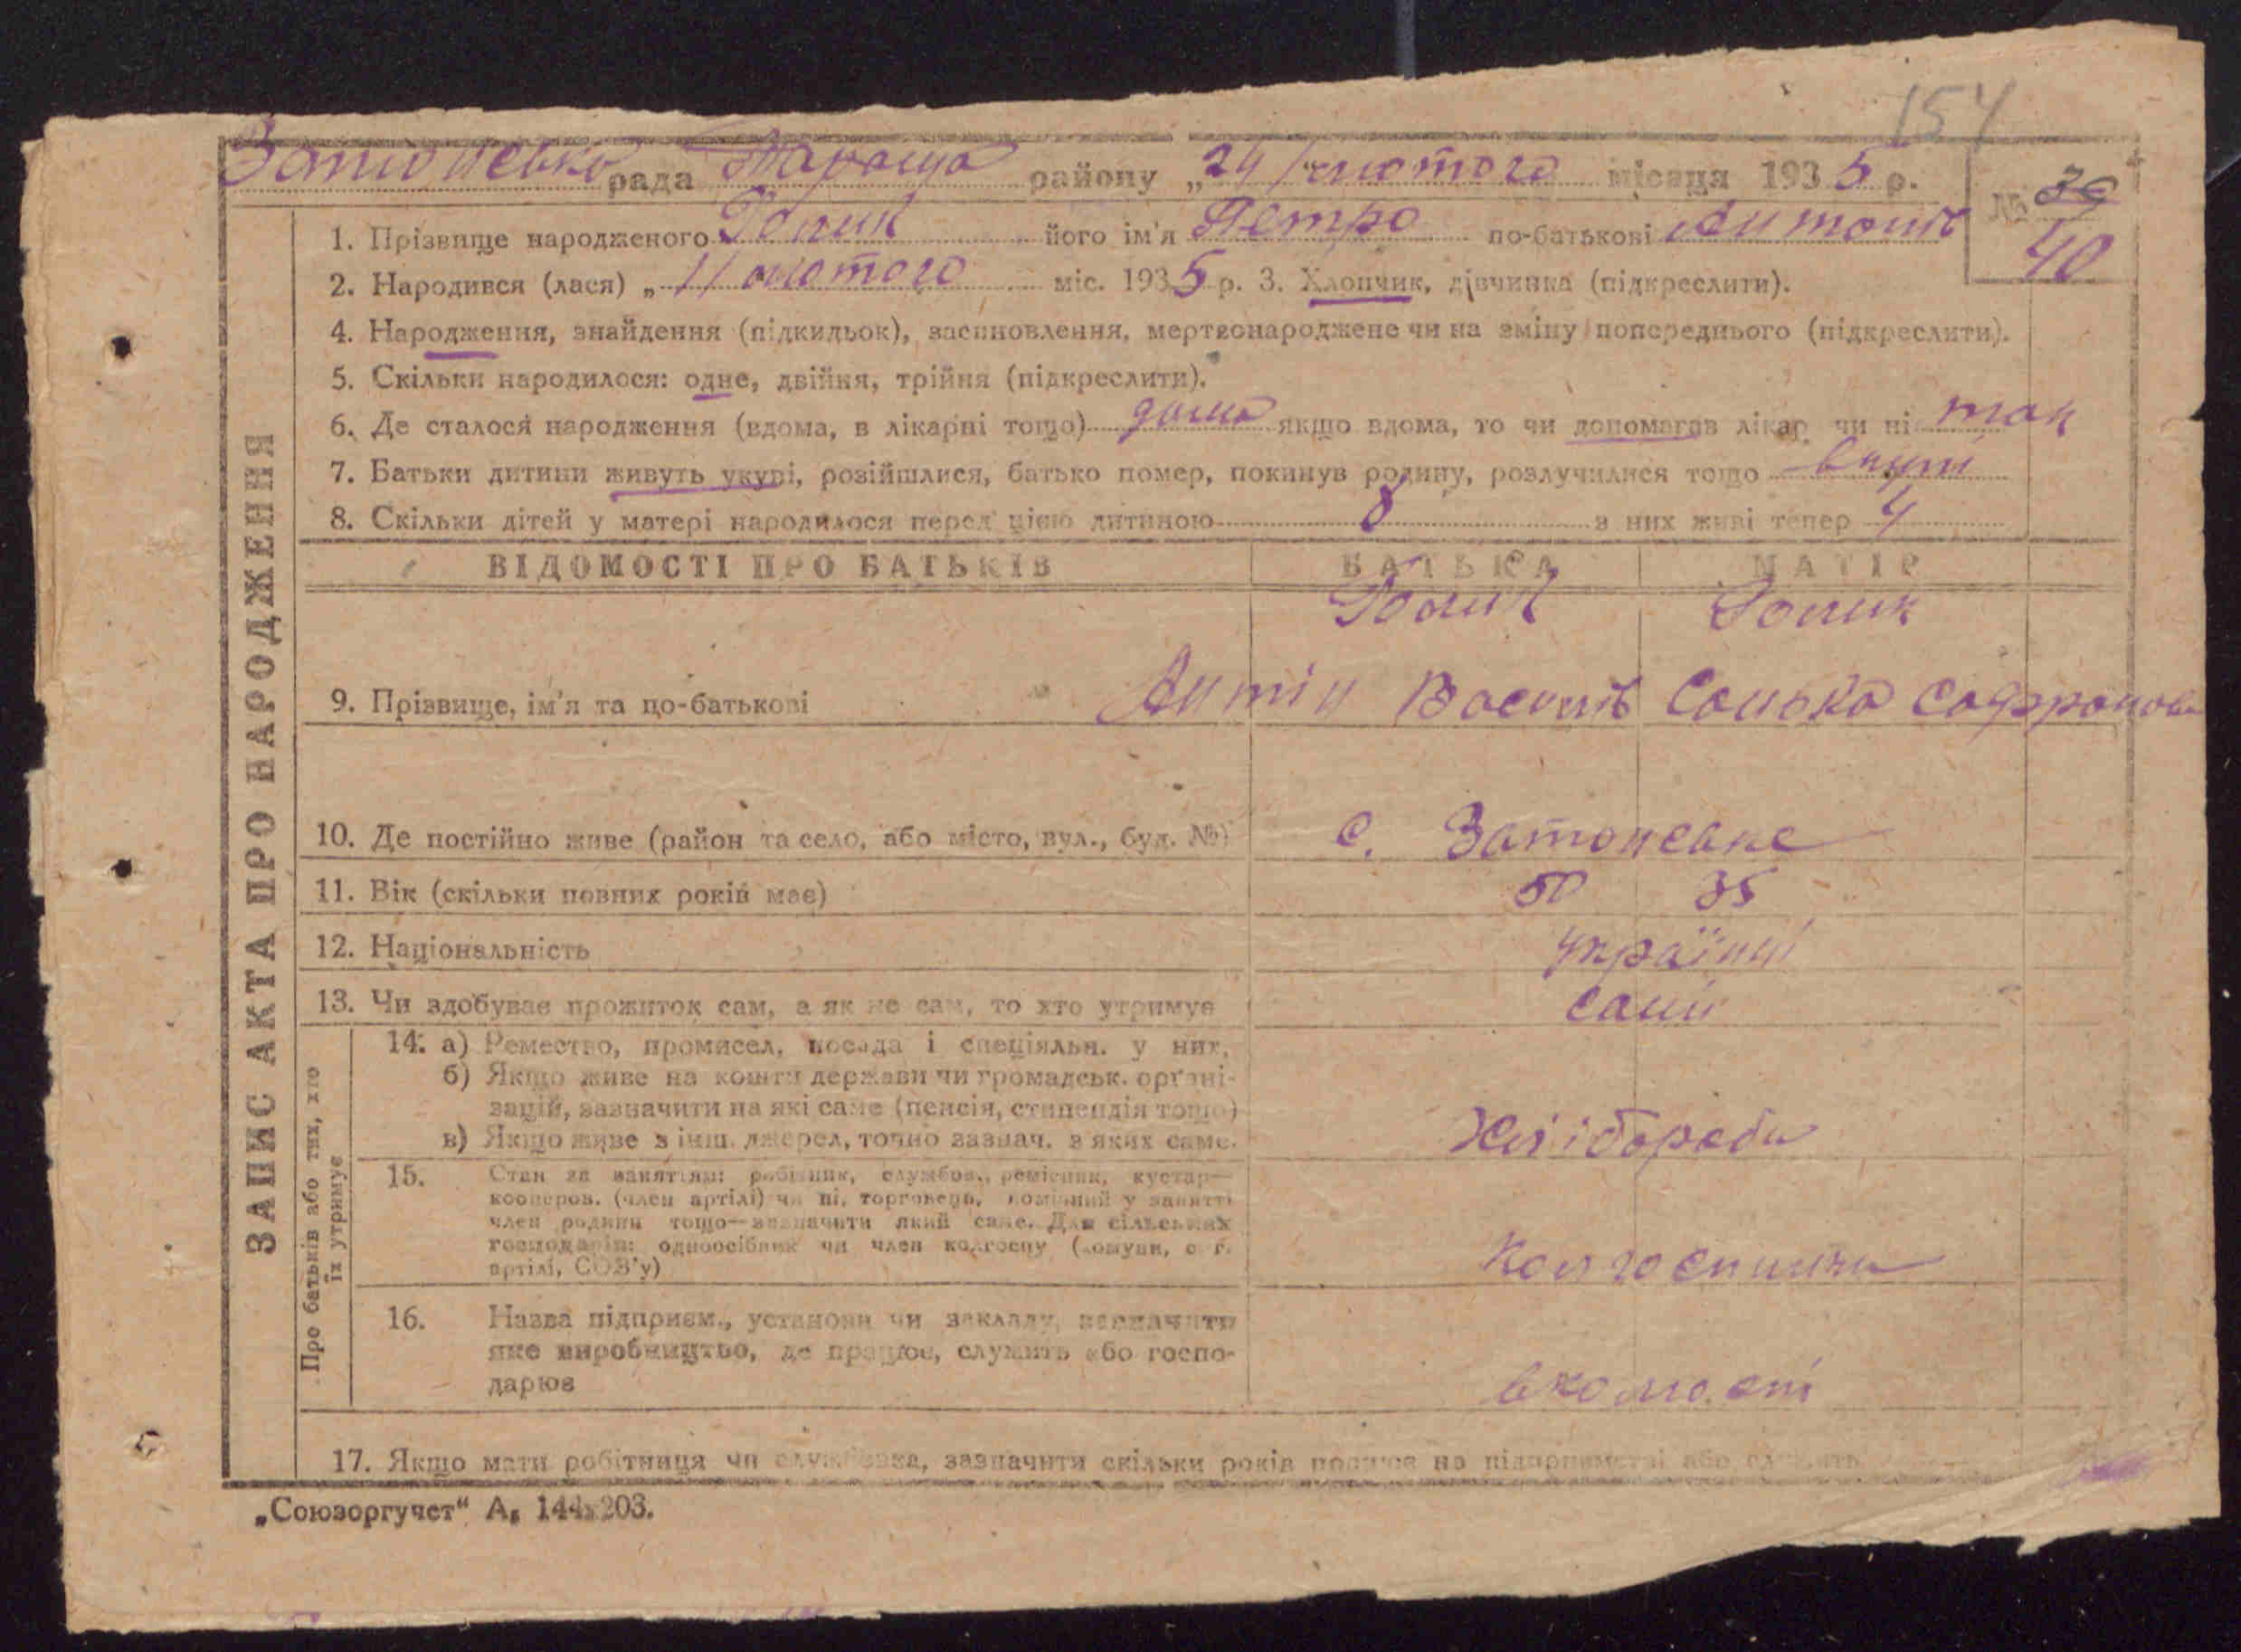 154
Затонсько рада Тараща району „24 лютого місяця 1935 р.
№ 39
40
1. Прізвище народженого Голик його ім'я Петро по-батькові Антонів
2. Народився (лася) „11 лютого міс. 1935 р. 3. Хлопчик, дівчинка (підкреслити).
4. Народження, знайдення (підкидьок), засиновлення, мертвонароджене чи на зміну попереднього (підкреслити).
5. Скільки народилося: одне, двійня, трійня (підкреслити).
6. Де сталося народження (вдома, в лікарні тощо) дома якщо вдома, то чи допомагав лікар чи ні так
7. Батьки дитини живуть укупі, розійшлися, батько помер, покинув родину, розлучилися тощо вкупі
8. Скільки дітей у матері народилося перед цією дитиною 8 з них живі тепер 4
ВІДОМОСТІ ПРО БАТЬКІВ БАТЬКА МАТІР
Голик Голик
9. Прізвище, ім'я та по-батькові Антін Василів Санька Софронова
10. Де постійно живе (район та село, або місто, вул., буд. №) с. Затонське
11. Вік (скільки повних років має) 50 35
12. Національність українці
13. Чи здобуває прожиток сам, а як не сам, то хто утримує самі
14. а) Ремество, промисел, посада і спеціяльн. у них,
б) Якщо живе на кошти держави чи громадськ. орґані-
зацій, зазначити на які саме (пенсія, стипендія тощо)
в) Якщо живе з інш. джерел, точно зазнач. з яких саме.
Хлібороби
15. Стан за заняттям: робітник, службов., ремісник, кустар—
кооперов. (член артілі) чи ні, торговець, помічний у занятті
член родини тощо—зазначити який саме. Для сільських
господарів: одноосібник чи член колгоспу (комуни, с. г.
артілі, СОЗ'у)
Колгоспники
16. Назва підприєм., установи чи закладу, зазначити
яке виробництво, де працює, служить або госпо-
дарює
17. Якщо мати робітниця чи службовка, зазначити скільки років працює на підприємстві або служить
ЗАПИС АКТА ПРО НАРОДЖЕННЯ
Про батьків або тих, хто
їх утримує
„Союзоргучет“ А₅ 144х203.